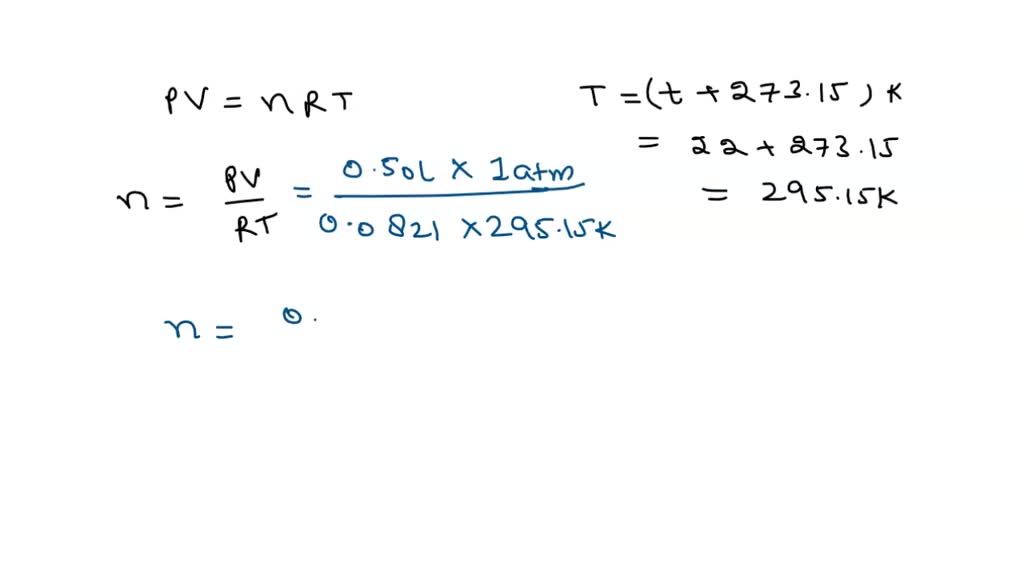 PV = nRT
T = (t + 273.15) K
= 22 + 273.15
= 295.15K
n = PV / RT = 0.50L × 1atm / 0.0821 × 295.15K
n = 0.